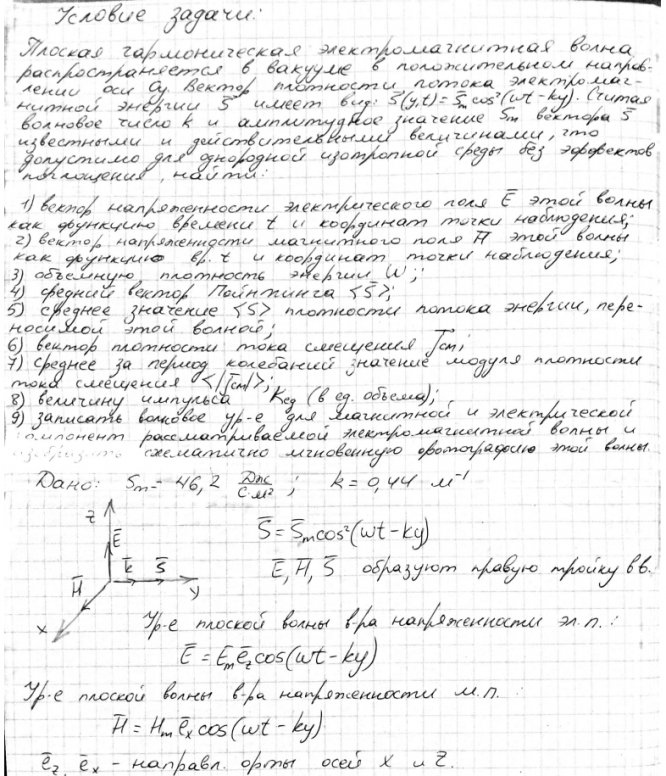 Условие задачи:
Плоская гармоническая электромагнитная волна
распространяется в вакууме в положительном направ-
лении оси Oy. Вектор плотности потока электромаг-
нитной энергии S̄ имеет вид: S̄(y,t) = S̄m cos²(ωt - ky). Считая
волновое число k и амплитудное значение Sm вектора S̄
известными и действительными величинами, что
допустимо для однородной изотропной среды без эффектов
поглощения, найти:
1) вектор напряженности электрического поля Ē этой волны
как функцию времени t и координат точки наблюдения;
2) вектор напряженности магнитного поля H̄ этой волны
как функцию вр. t и координат точки наблюдения;
3) объемную плотность энергии W;
4) средний вектор Пойнтинга <S̄>;
5) среднее значение <S> плотности потока энергии, пере-
носимой этой волной;
6) вектор плотности тока смещения j̄см;
7) среднее за период колебаний значение модуля плотности
тока смещения <|j̄см|>;
8) величину импульса Kед (в ед. объема);
9) записать волновое ур-е для магнитной и электрической
компонент рассматриваемой электромагнитной волны и
изобразить схематично мгновенную фотографию этой волны.
Дано: Sm = 46,2 Дж/с·м² ; k = 0,44 м⁻¹
z
Ē
S̄ = S̄m cos²(ωt - ky)
H̄ k̄ S̄ y
x
Ē, H̄, S̄ образуют правую тройку вв.
Ур-е плоской волны в-ра напряженности эл. п. :
Ē = Em ēz cos(ωt - ky)
Ур-е плоской волны в-ра напряженности м.п. :
H̄ = Hm ēx cos(ωt - ky)
ēz, ēx - направл. орты осей x и z.